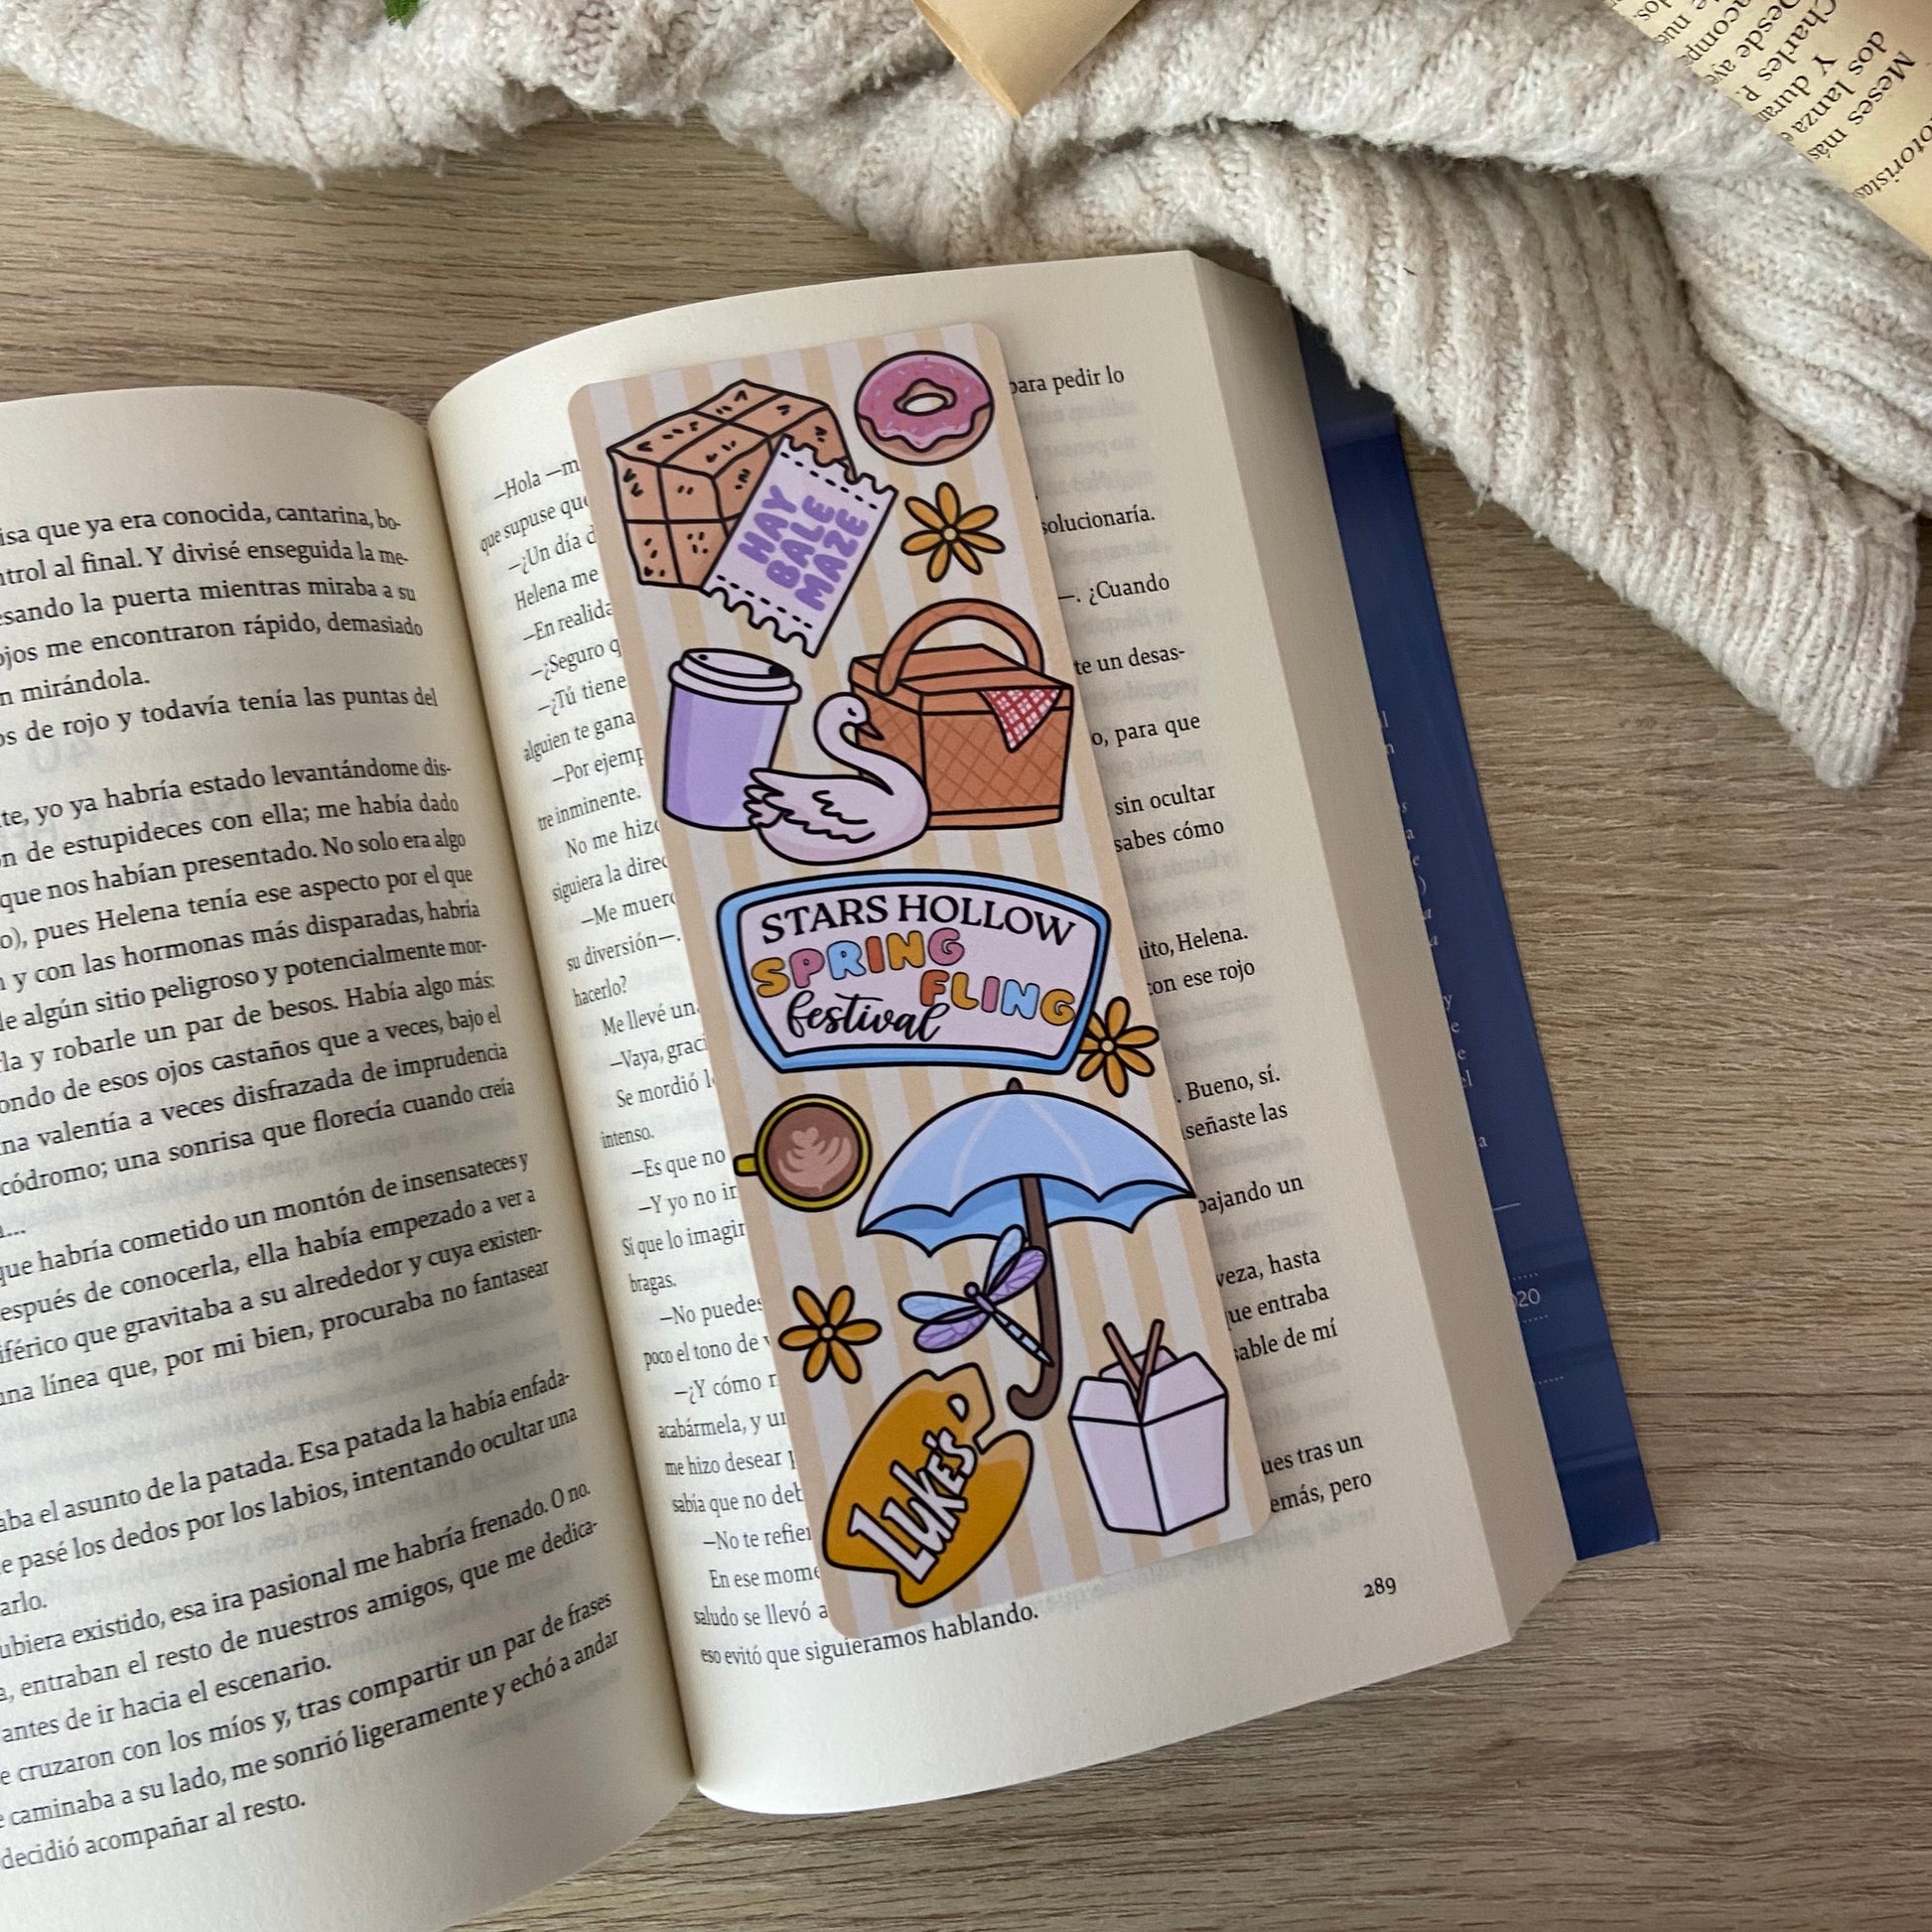 isa que ya era conocida, cantarina, bo-
ntrol al final. Y divisé enseguida la me-
esando la puerta mientras miraba a su
ojos me encontraron rápido, demasiado
n mirándola.
os de rojo y todavía tenía las puntas del
te, yo ya habría estado levantándome dis-
ón de estupideces con ella; me había dado
que nos habían presentado. No solo era algo
o), pues Helena tenía ese aspecto por el que
n y con las hormonas más disparadas, habría
le algún sitio peligroso y potencialmente mor-
rla y robarle un par de besos. Había algo más:
ondo de esos ojos castaños que a veces, bajo el
na valentía a veces disfrazada de imprudencia
códromo; una sonrisa que florecía cuando creía
a...
que habría cometido un montón de insensateces y
espués de conocerla, ella había empezado a ver a
iférico que gravitaba a su alrededor y cuya existen-
una línea que, por mi bien, procuraba no fantasear
aba el asunto de la patada. Esa patada la había enfada-
e pasé los dedos por los labios, intentando ocultar una
arlo.
ubiera existido, esa ira pasional me habría frenado. O no.
a, entraban el resto de nuestros amigos, que me dedica-
antes de ir hacia el escenario.
e cruzaron con los míos y, tras compartir un par de frases
e caminaba a su lado, me sonrió ligeramente y echó a andar
decidió acompañar al resto.
para pedir lo
—Hola —m
que supuse que
solucionaría.
—¿Un día d
Helena me
—. ¿Cuando
—En realida
—¿Seguro q
te un desas-
—¿Tú tiene
alguien te gana
o, para que
—Por ejemp
tre inminente.
sin ocultar
No me hizo
sabes cómo
siguiera la direc
—Me muero
su diversión—.
ito, Helena.
hacerlo?
con ese rojo
Me llevé un
—Vaya, graci
. Bueno, sí.
Se mordió l
señaste las
intenso.
—Es que no
bajando un
—Y yo no ir
Sí que lo imagir
veza, hasta
bragas.
que entraba
—No puedes
sable de mí
poco el tono de v
—¿Y cómo r
acabármela, y ur
ues tras un
me hizo desear
emás, pero
sabía que no deb
—No te refier
En ese mome
saludo se llevó a
eso evitó que siguiéramos hablando.
289
HAY
BALE
MAZE
STARS HOLLOW
SPRING
FLING
festival
LUKE'S
otoristas
Meses más
dos lanza
Y duran
Charles P.
Desde aye
020